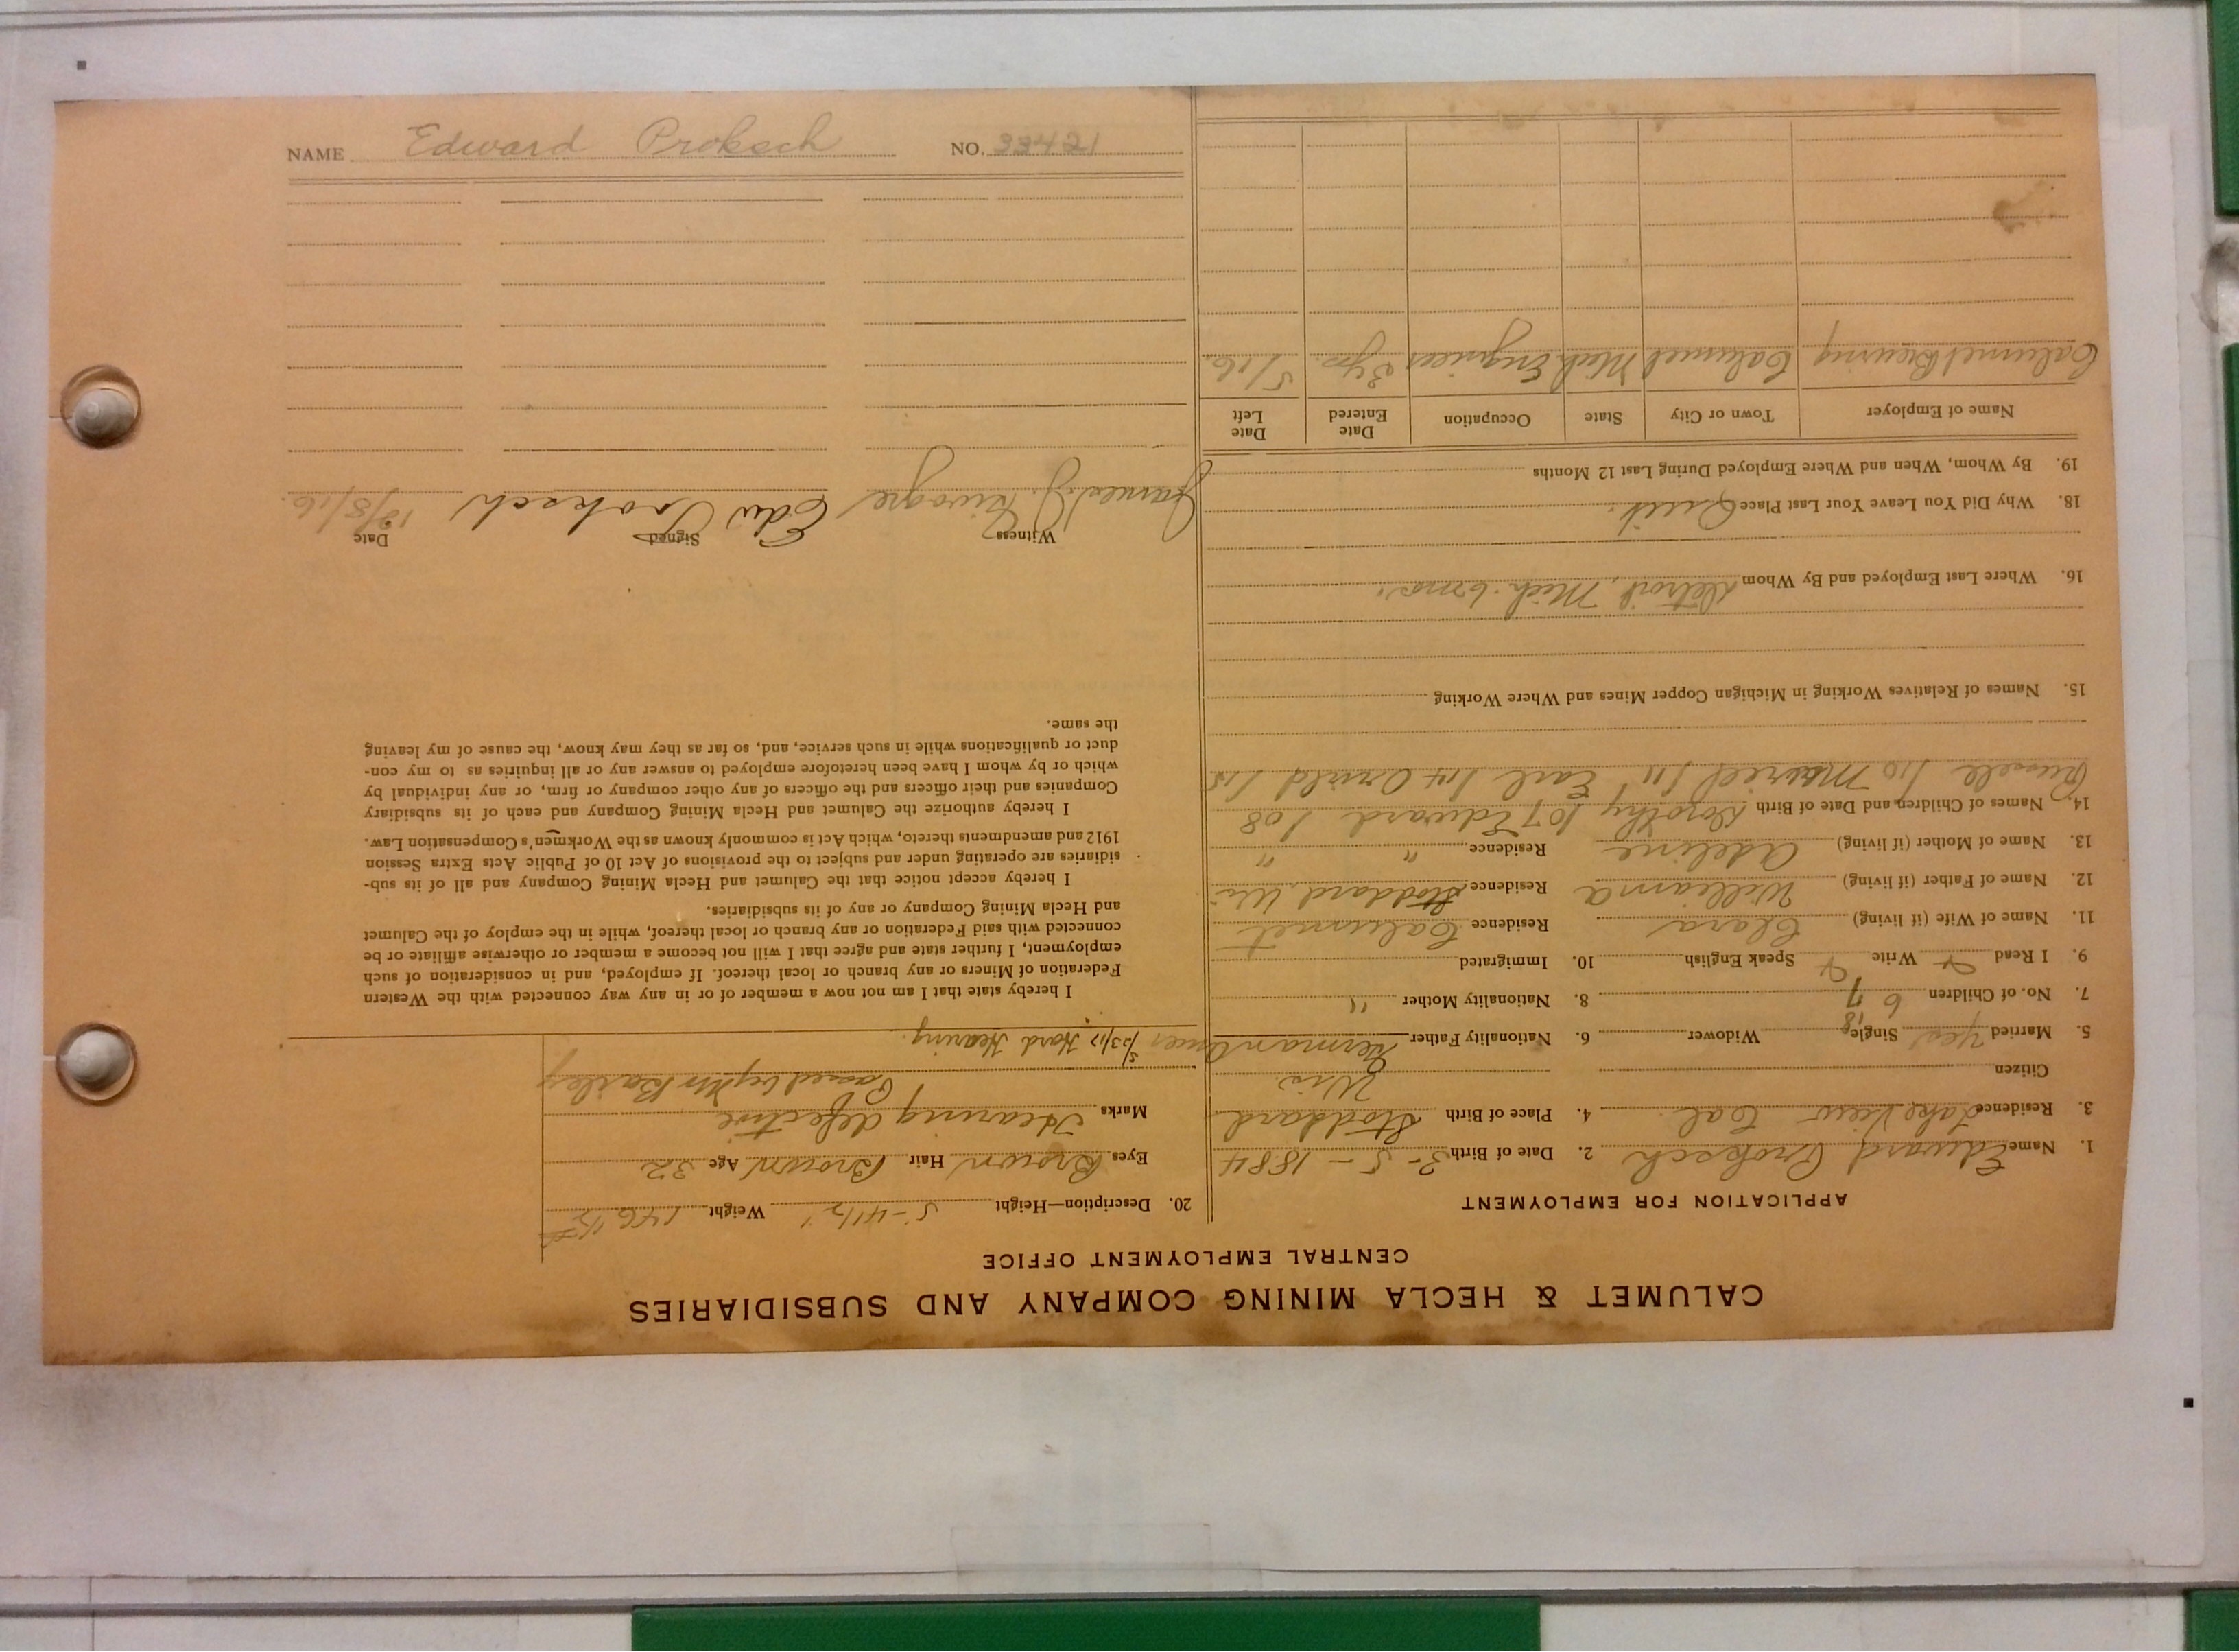 NAME Edward Proksch NO. 33421
CALUMET & HECLA MINING COMPANY AND SUBSIDIARIES
CENTRAL EMPLOYMENT OFFICE
APPLICATION FOR EMPLOYMENT
1. Name Edward Proksch 2. Date of Birth 3-5-1884
3. Residence Lake View Cal. 4. Place of Birth Stoddard
Citizen Wis.
5. Married Yes Single Widower 6. Nationality Father German Amer
7. No. of Children 6 7 8. Nationality Mother "
9. I Read Write Speak English 10. Immigrated
11. Name of Wife (if living) Clara Residence Calumet
12. Name of Father (if living) William Residence Stoddard, Wis.
13. Name of Mother (if living) Adeline Residence " "
14. Names of Children and Date of Birth Dorothy 1/07 Edward 1/08
Russell 1/10 Mauriel 1/11 Earl 1/14 Orvild 1/15
15. Names of Relatives Working in Michigan Copper Mines and Where Working
16. Where Last Employed and By Whom Detroit, Mich. 6 mos.
18. Why Did You Leave Your Last Place Quit.
19. By Whom, When and Where Employed During Last 12 Months
Name of Employer Town or City State Occupation Date Entered Date Left
Calumet Brewing Calumet Mich Engineer 3 yrs. 5/16
20. Description—Height 5-4 1/2" Weight 146 1/2
Eyes Brown Hair Brown Age 32
Marks Hearing defective
Passed by Mr Bailey
5/23/17 Hard Hearing.
I hereby state that I am not now a member of or in any way connected with the Western
Federation of Miners or any branch or local thereof. If employed, and in consideration of such
employment, I further state and agree that I will not become a member or otherwise affiliate or be
connected with said Federation or any branch or local thereof, while in the employ of the Calumet
and Hecla Mining Company or any of its subsidiaries.
I hereby accept notice that the Calumet and Hecla Mining Company and all of its sub-
sidiaries are operating under and subject to the provisions of Act 10 of Public Acts Extra Session
1912 and amendments thereto, which Act is commonly known as the Workmen's Compensation Law.
I hereby authorize the Calumet and Hecla Mining Company and each of its subsidiary
Companies and their officers and the officers of any other company or firm, or any individual by
which or by whom I have been heretofore employed to answer any or all inquiries as to my con-
duct or qualifications while in such service, and, so far as they may know, the cause of my leaving
the same.
Witness Signed Date
James J. Edw Proksch 12/8/16.